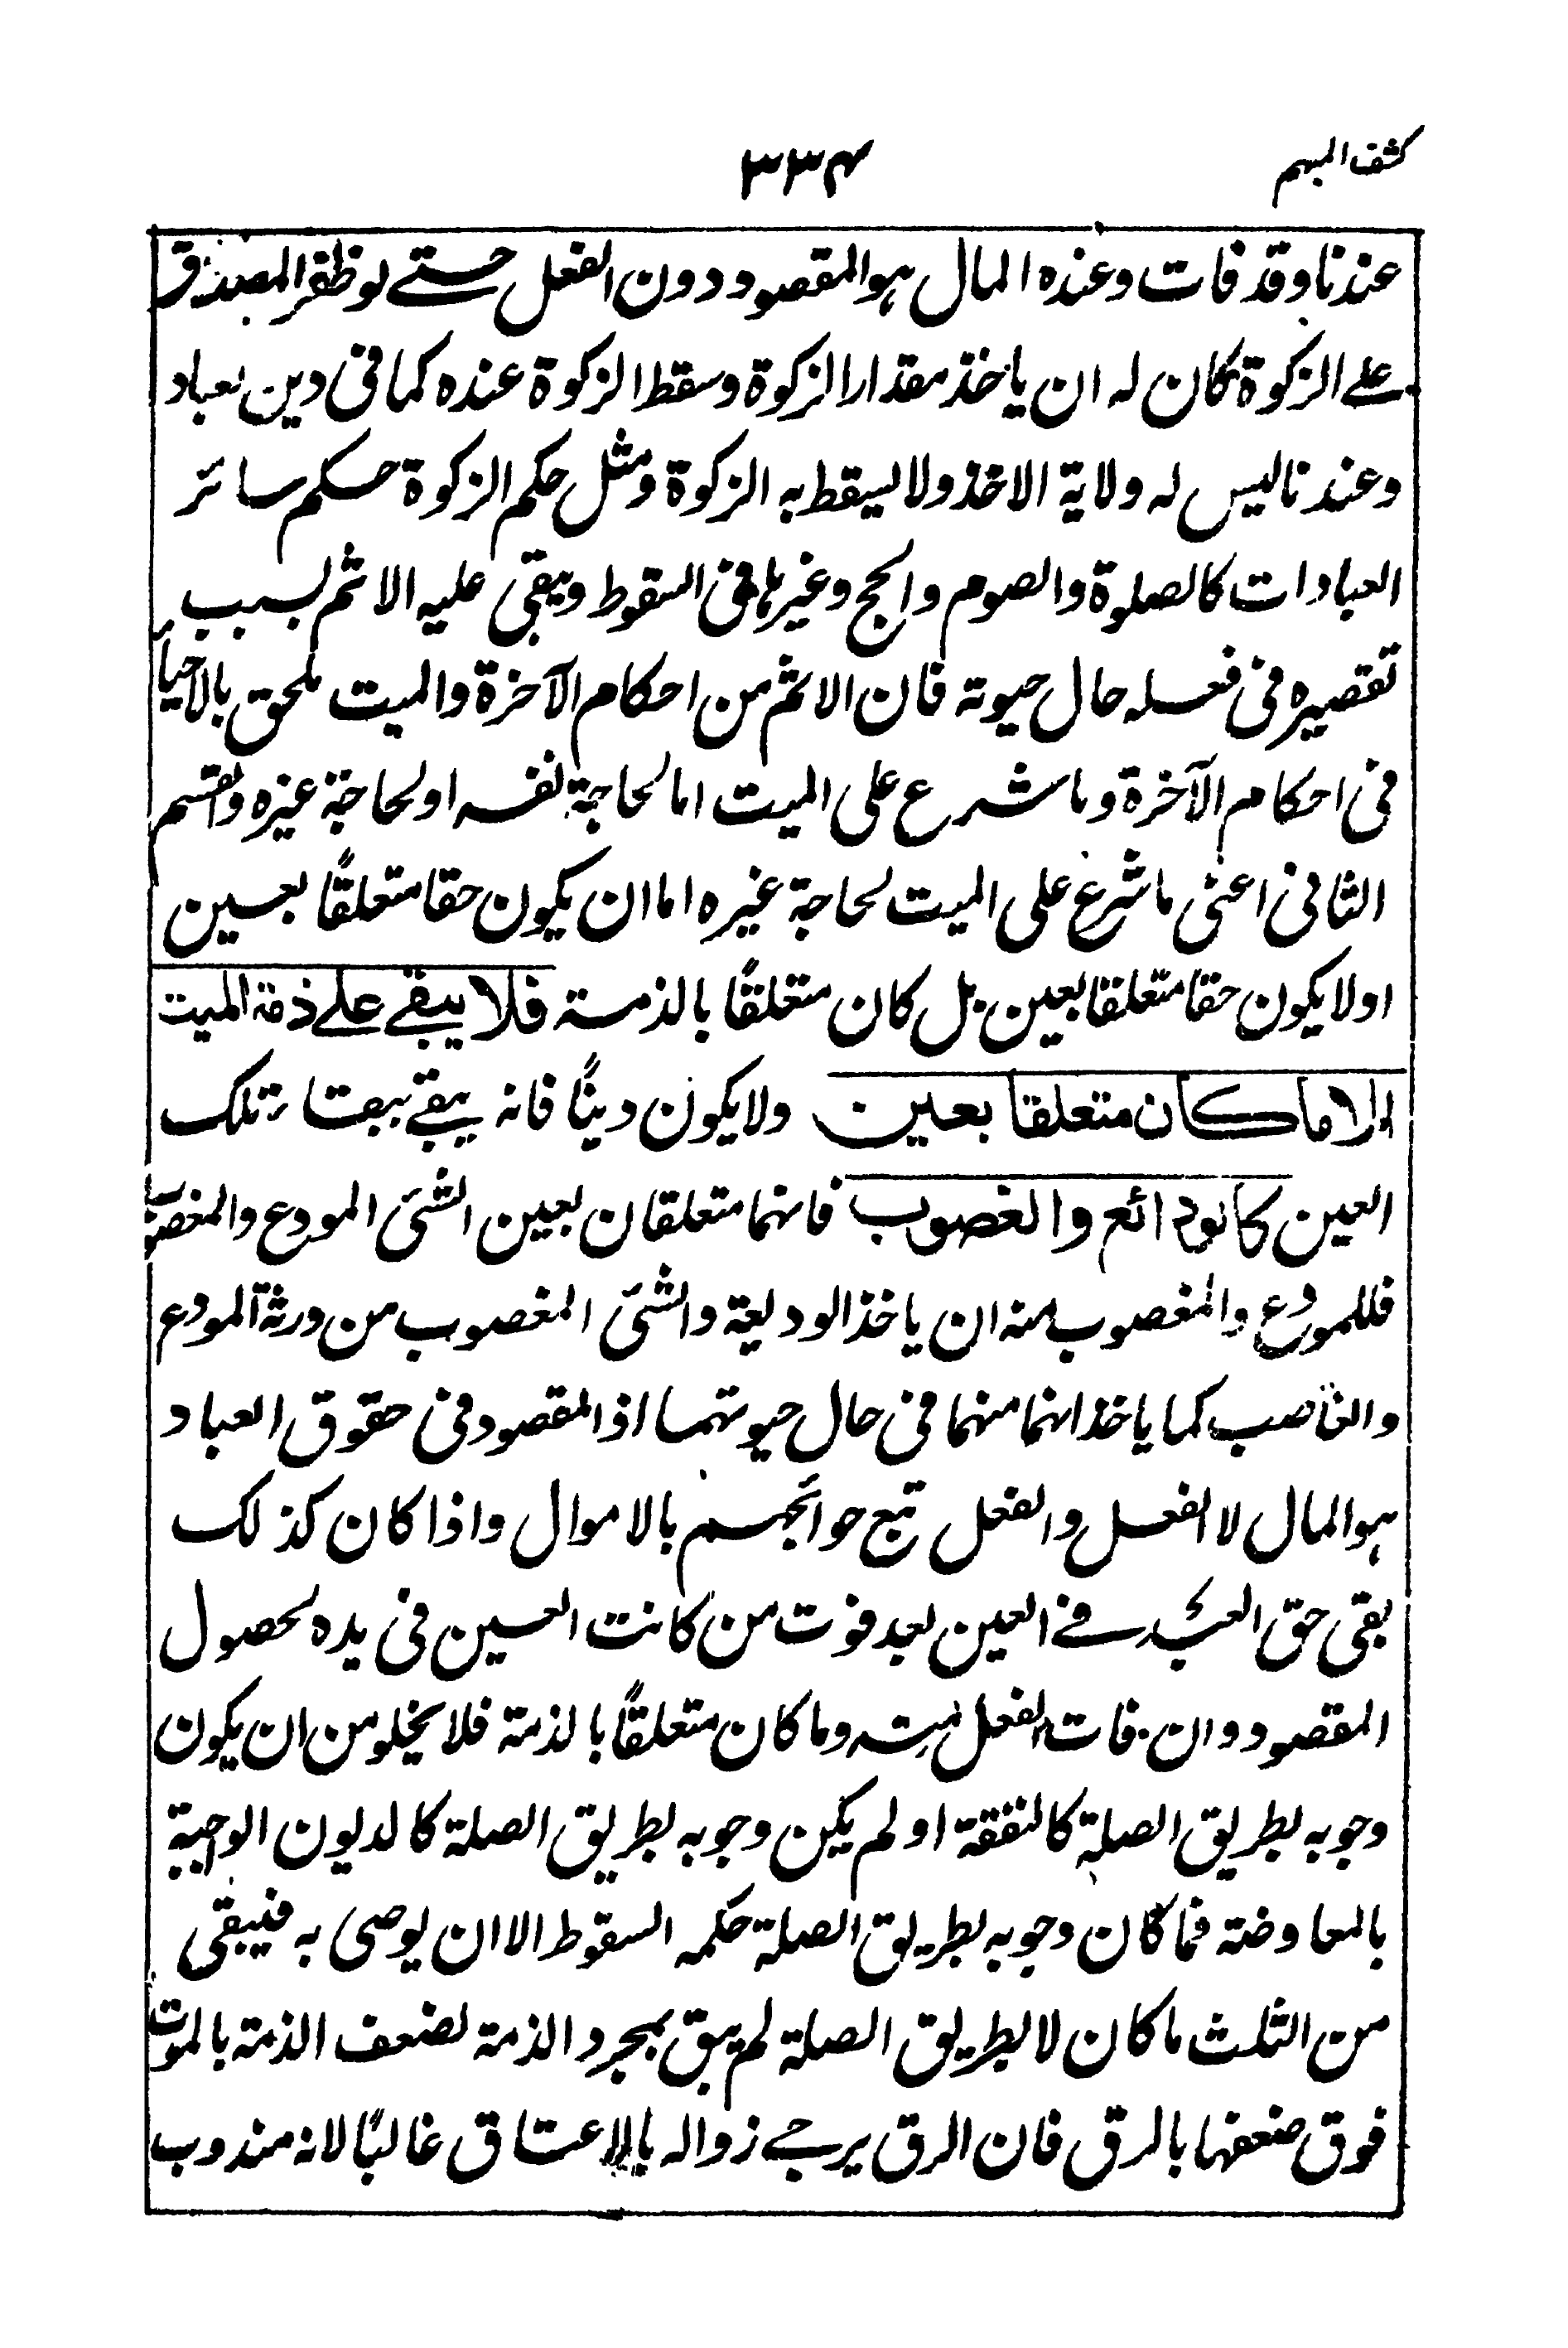 كشف المبهم
٣٣٤
عندنا وقد فات وعنده المال هو المقصود دون الفعل حتے لو ظفر المصدق
علے الزكوة كان له ان ياخذ مقدار الزكوة وسقط الزكوة عنده كما فى دين لعباد
وعندنا ليس له ولاية الاخذ ولا يسقط به الزكوة ومثل حكم الزكوة حكم سائر
العبادات كالصلوة والصوم والحج وغيرها فى السقوط ويبقى عليه الاثم لسبب
تقصيره فى فعله حال حيوته فان الاثم من احكام الآخرة والميت ملحق بالاحياء
فى احكام الآخرة وما شرع على الميت اما لحاجة نفسه او لحاجة غيره والقسم
الثانى اعنى ما شرع على الميت لحاجة غيره اما ان يكون حقا متعلقاً بعين
اولا يكون حقا متعلقا بعين بل كان متعلقاً بالذمة فلا يبقے علے ذمة الميت
الا ما كان متعلقا بعين ولا يكون ديناً فانه يبقے ببقاء تلك
العين كالودائع والغصوب فانهما متعلقان بعين الشئ المودع والمغصوب
فللمودع والمغصوب منه ان ياخذ الوديعة والشئ المغصوب من ورثة المودع
والغاصب كما ياخذانهما منهما فى حال حيوتهما اذ المقصود فى حقوق العباد
هو المال لا الفعل والفعل تبع حوائجهم بالاموال واذا كان كذلك
بقى حق العبد فے العين بعد فوت من كانت العين فى يده لحصول
المقصود وان فات الفعل منه وما كان متعلقاً بالذمة فلا يخلو من ان يكون
وجوبه بطريق الصلة كالنفقة او لم يكن وجوبه بطريق الصلة كالديون الواجبة
بالمعاوضة فما كان وجوبه بطريق الصلة حكمه السقوط الا ان يوصى به فيبقى
من الثلث ما كان لا بطريق الصلة لم يبق بمجرد الذمة لضعف الذمة بالموت
فوق ضعفها بالرق فان الرق يرجے زواله بالاعتاق غالبًا لانه مندوب